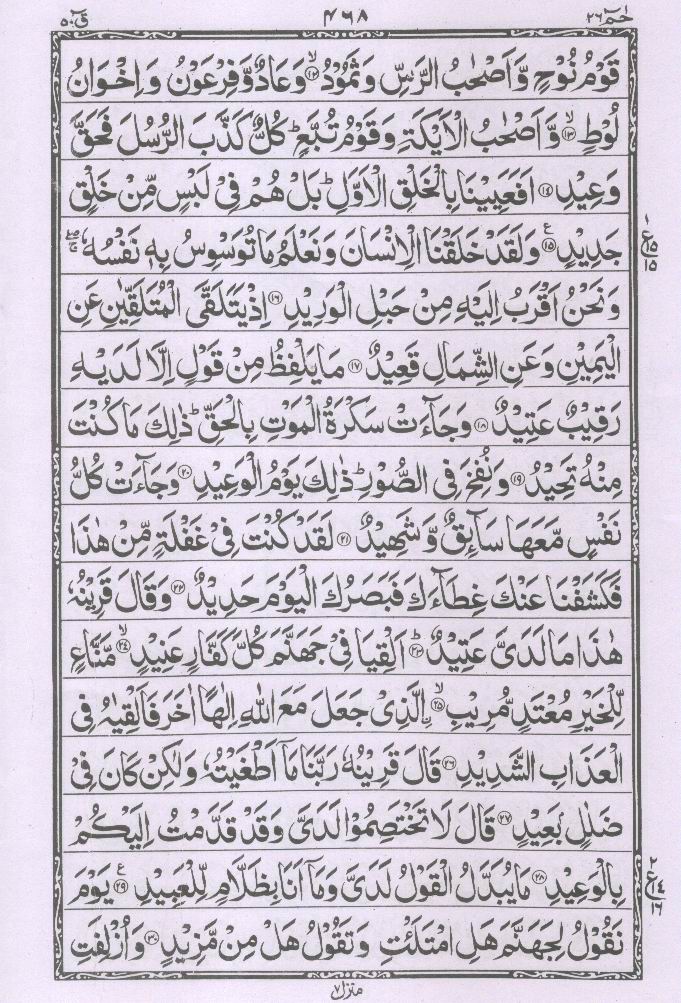 حٰمٓ ٢٦ ٤٦٨ قٓ ٥٠
قَوْمُ نُوْحٍ وَّاَصْحٰبُ الرَّسِّ وَثَمُوْدُ ۙ۝١٢ وَعَادٌ وَّفِرْعَوْنُ وَاِخْوَانُ
لُوْطٍ ۙ۝١٣ وَّاَصْحٰبُ الْاَيْكَةِ وَقَوْمُ تُبَّعٍ ؕ كُلٌّ كَذَّبَ الرُّسُلَ فَحَقَّ
وَعِيْدِ ۝١٤ اَفَعَيِيْنَا بِالْخَلْقِ الْاَوَّلِ ؕ بَلْ هُمْ فِيْ لَبْسٍ مِّنْ خَلْقٍ
جَدِيْدٍ ۝١٥ ع وَلَقَدْ خَلَقْنَا الْاِنْسَانَ وَنَعْلَمُ مَا تُوَسْوِسُ بِهٖ نَفْسُهٗ ۖۚ
وَنَحْنُ اَقْرَبُ اِلَيْهِ مِنْ حَبْلِ الْوَرِيْدِ ۝١٦ اِذْ يَتَلَقَّى الْمُتَلَقِّيٰنِ عَنِ
الْيَمِيْنِ وَعَنِ الشِّمَالِ قَعِيْدٌ ۝١٧ مَا يَلْفِظُ مِنْ قَوْلٍ اِلَّا لَدَيْهِ
رَقِيْبٌ عَتِيْدٌ ۝١٨ وَجَآءَتْ سَكْرَةُ الْمَوْتِ بِالْحَقِّ ؕ ذٰلِكَ مَا كُنْتَ
مِنْهُ تَحِيْدُ ۝١٩ وَنُفِخَ فِى الصُّوْرِ ؕ ذٰلِكَ يَوْمُ الْوَعِيْدِ ۝٢٠ وَجَآءَتْ كُلُّ
نَفْسٍ مَّعَهَا سَآئِقٌ وَّشَهِيْدٌ ۝٢١ لَقَدْ كُنْتَ فِيْ غَفْلَةٍ مِّنْ هٰذَا
فَكَشَفْنَا عَنْكَ غِطَآءَكَ فَبَصَرُكَ الْيَوْمَ حَدِيْدٌ ۝٢٢ وَقَالَ قَرِيْنُهٗ
هٰذَا مَا لَدَىَّ عَتِيْدٌ ؕ۝٢٣ اَلْقِيَا فِيْ جَهَنَّمَ كُلَّ كَفَّارٍ عَنِيْدٍ ۙ۝٢٤ مَّنَّاعٍ
لِّلْخَيْرِ مُعْتَدٍ مُّرِيْبِ ۙ۝٢٥ ِۨالَّذِيْ جَعَلَ مَعَ اللّٰهِ اِلٰهًا اٰخَرَ فَاَلْقِيٰهُ فِى
الْعَذَابِ الشَّدِيْدِ ۝٢٦ قَالَ قَرِيْنُهٗ رَبَّنَا مَآ اَطْغَيْتُهٗ وَلٰكِنْ كَانَ فِيْ
ضَلٰلٍۢ بَعِيْدٍ ۝٢٧ قَالَ لَا تَخْتَصِمُوْا لَدَىَّ وَقَدْ قَدَّمْتُ اِلَيْكُمْ
بِالْوَعِيْدِ ۝٢٨ مَا يُبَدَّلُ الْقَوْلُ لَدَىَّ وَمَآ اَنَا بِظَلَّامٍ لِّلْعَبِيْدِ ۝٢٩ ع يَوْمَ
نَقُوْلُ لِجَهَنَّمَ هَلِ امْتَلَئْتِ وَتَقُوْلُ هَلْ مِنْ مَّزِيْدٍ ۝٣٠ وَاُزْلِفَتِ
١ ع ١٥ ١٥
٢ ع ١٤ ١٦
منزل ٧